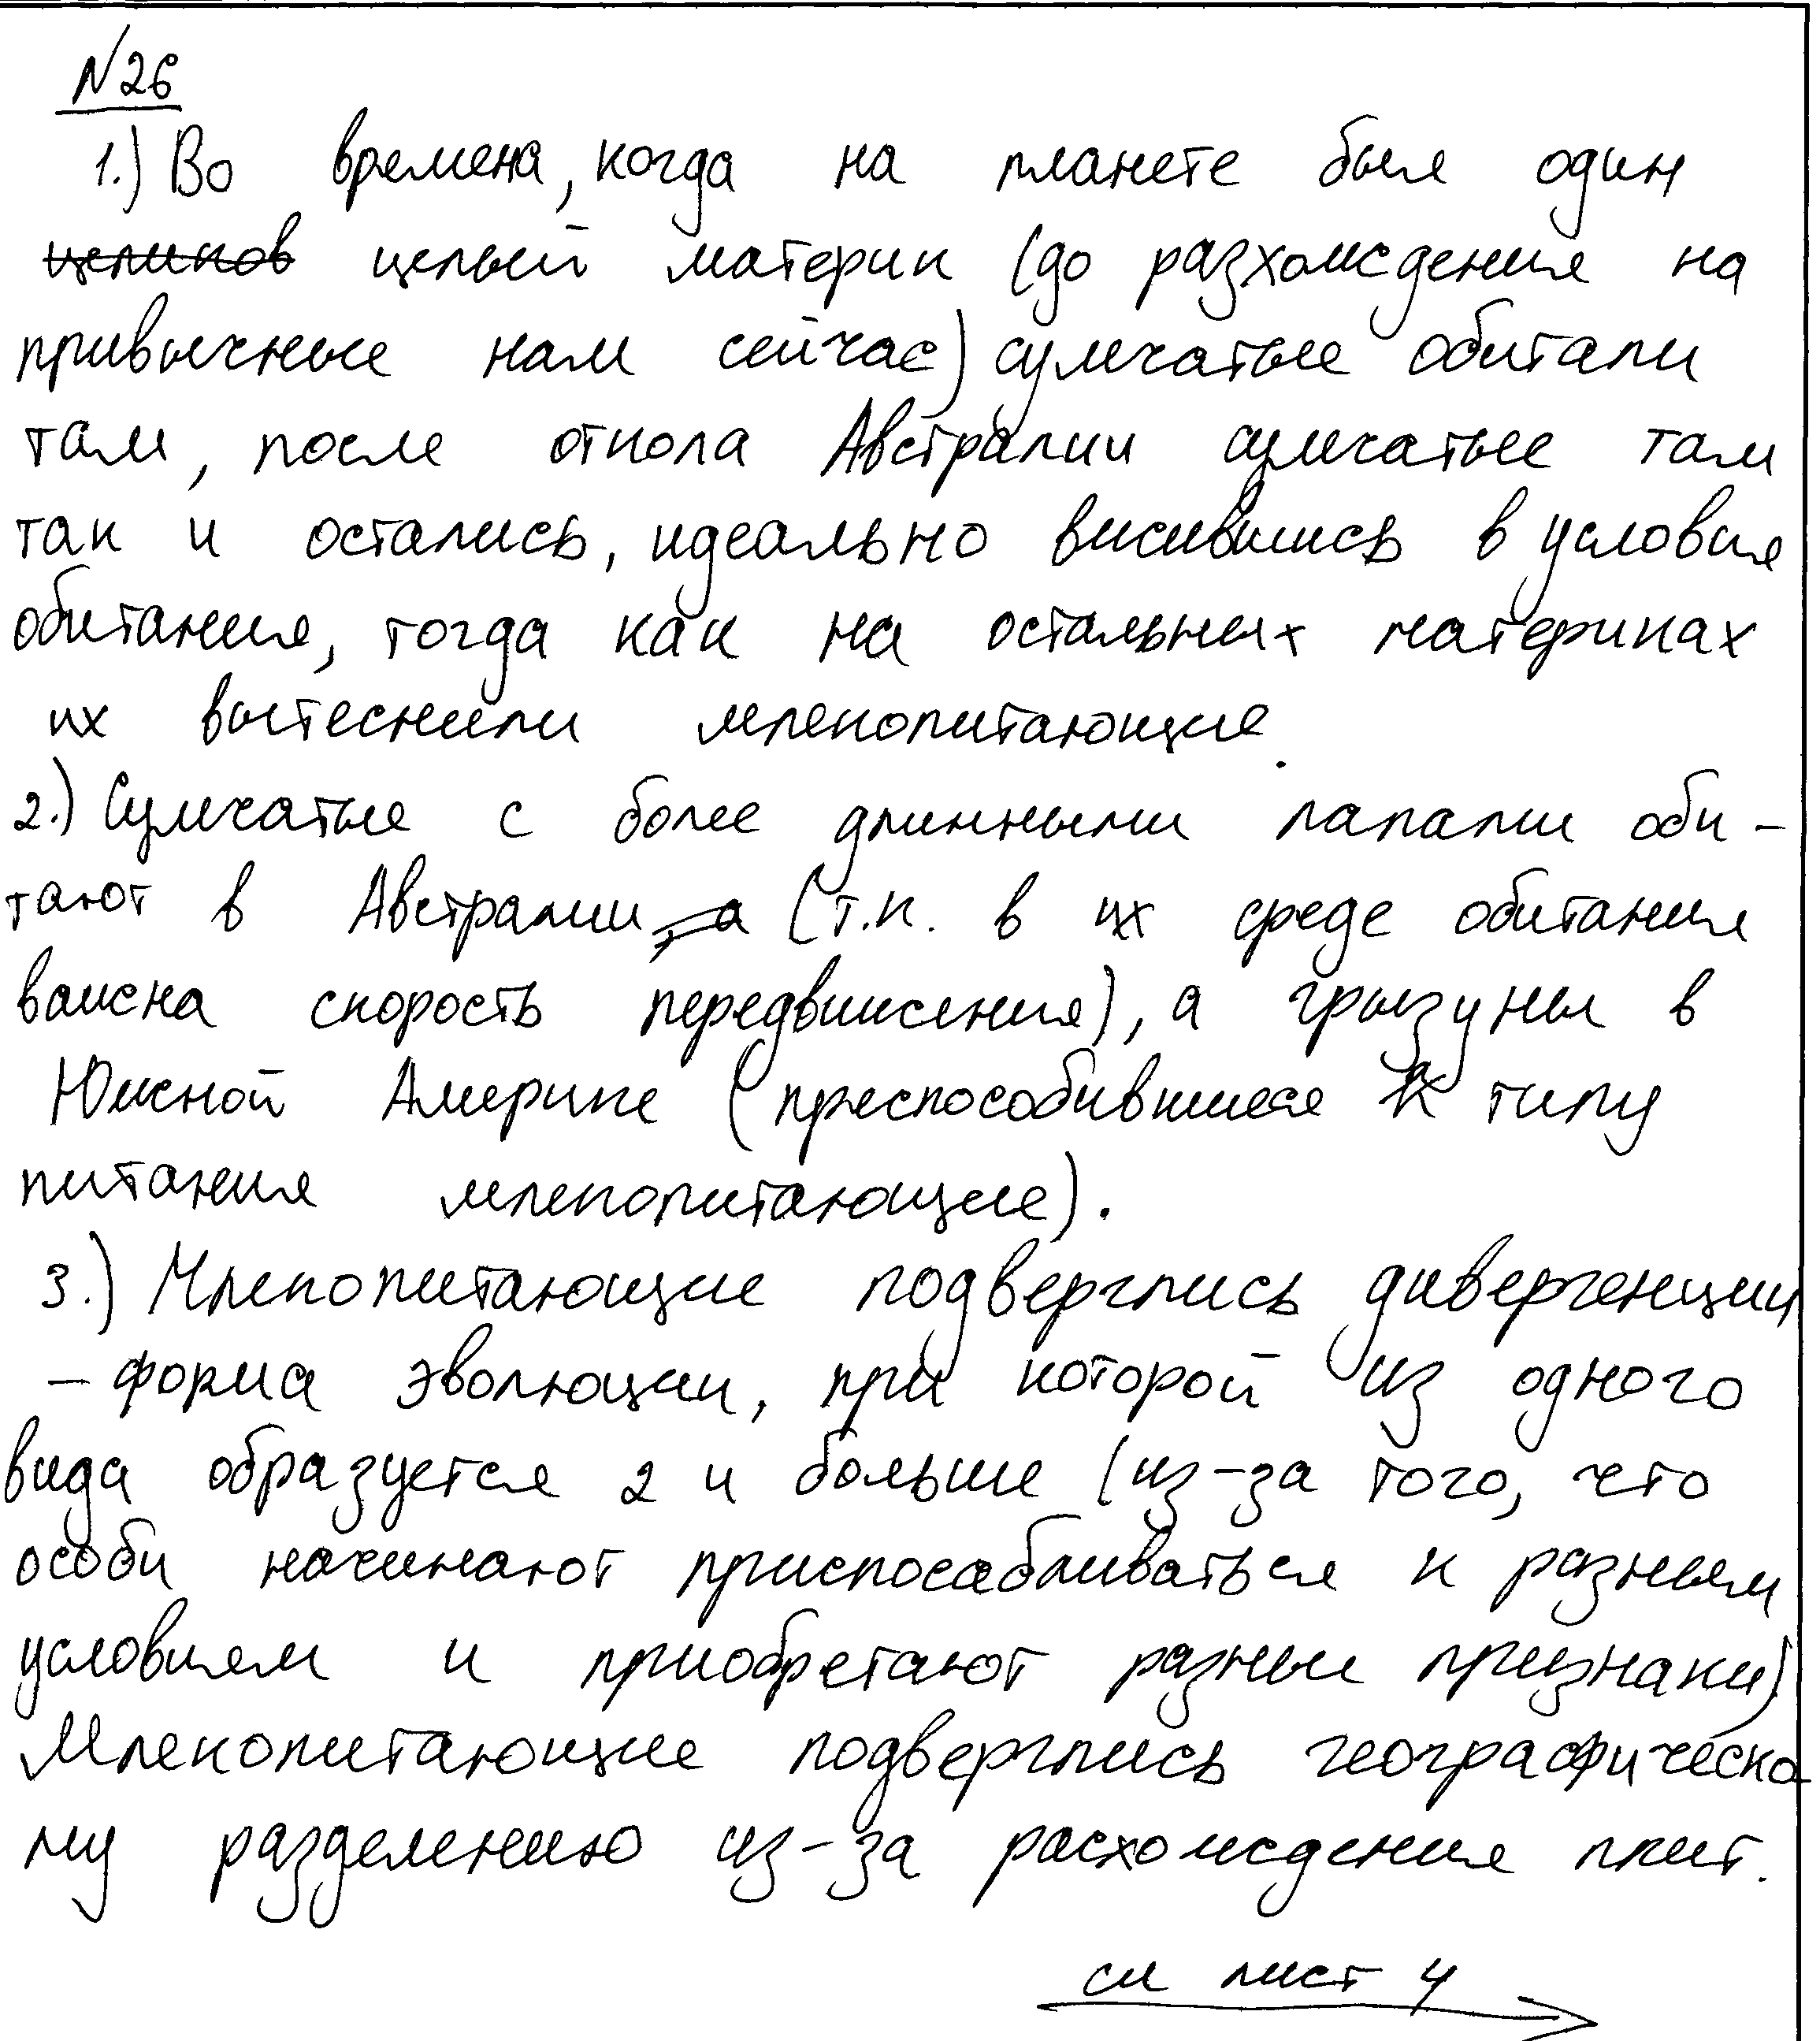 N26
1.) Во времена, когда на планете был один
целиков целый материк (до разхождения на
привычные нам сейчас) сумчатые обитали
там, после откола Австралии сумчатые там
так и остались, идеально вжившись в условия
обитания, тогда как на остальных материках
их вытеснили млекопитающие.
2.) Сумчатые с более длинными лапами оби-
тают в Австралии, а (т.к. в их среде обитания
важна скорость передвижения), а грызуны в
Южной Америке (преспособившиеся к типу
питания млекопитающие).
3.) Млекопитающие подверглись дивергенции
- форма эволюции, при которой из одного
вида образуется 2 и больше (из-за того, что
особи начинают приспосабливаться к разным
условиям и приобретают разные признаки)
Млекопитающие подверглись географическо
му разделению из-за расхождения плит.
см лист 4